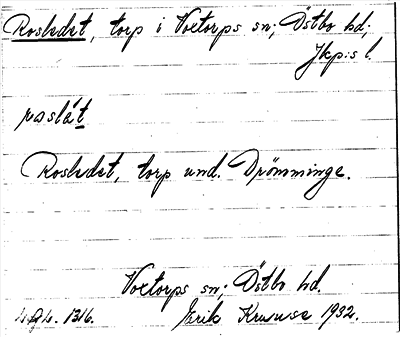 Rosledet, torp i Voxtorps sn; Östbo hd;
Jkp:s l.
roslät
Rosledet, torp und. Drömminge.
Voxtorps sn; Östbo hd.
1316. Erik 1932.